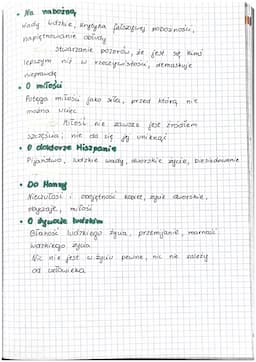 • Na nabożną
Wady ludzkie, krytyka fałszywej pobożności,
napiętnowanie obłudy
stwarzanie pozorów, że jest się kimś
lepszym niż w rzeczywistości, demaskuje
nieprawdę
• O miłości
Potęga miłości jako siła, przed którą nie
można uciec
Miłość nie zawsze jest źródłem
szczęścia, nie da się jej uniknąć
• O doktorze Hiszpanie
Pijaństwo, ludzkie wady, dworskie życie, biesiadowanie
• Do Hanny
Nieczułość, kobiet, życie dworskie,
obyczaje, miłość
• O żywocie ludzkim
Błahość ludzkiego życia, przemijanie, marność
ludzkiego życia
Nic nie jest w życiu pewne, nic nie zależy
od człowieka